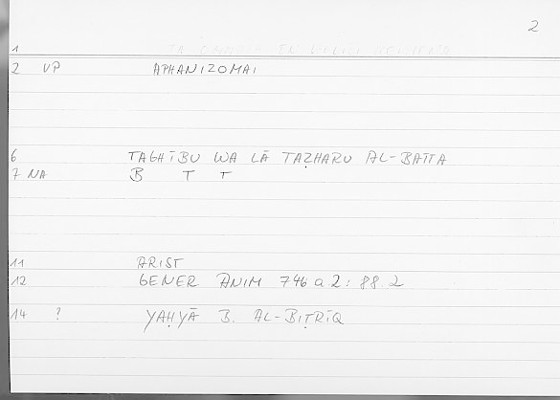 2
1
2 VP APHANIZOMAI
6 TAGHĪBU WA LĀ TAẒHARU AL-BATTA
7 NA B T T
11 ARIST
12 GENER ANIM 746 a 2: 88.2
14 ? YAḤYĀ B. AL-BIṬRĪQ